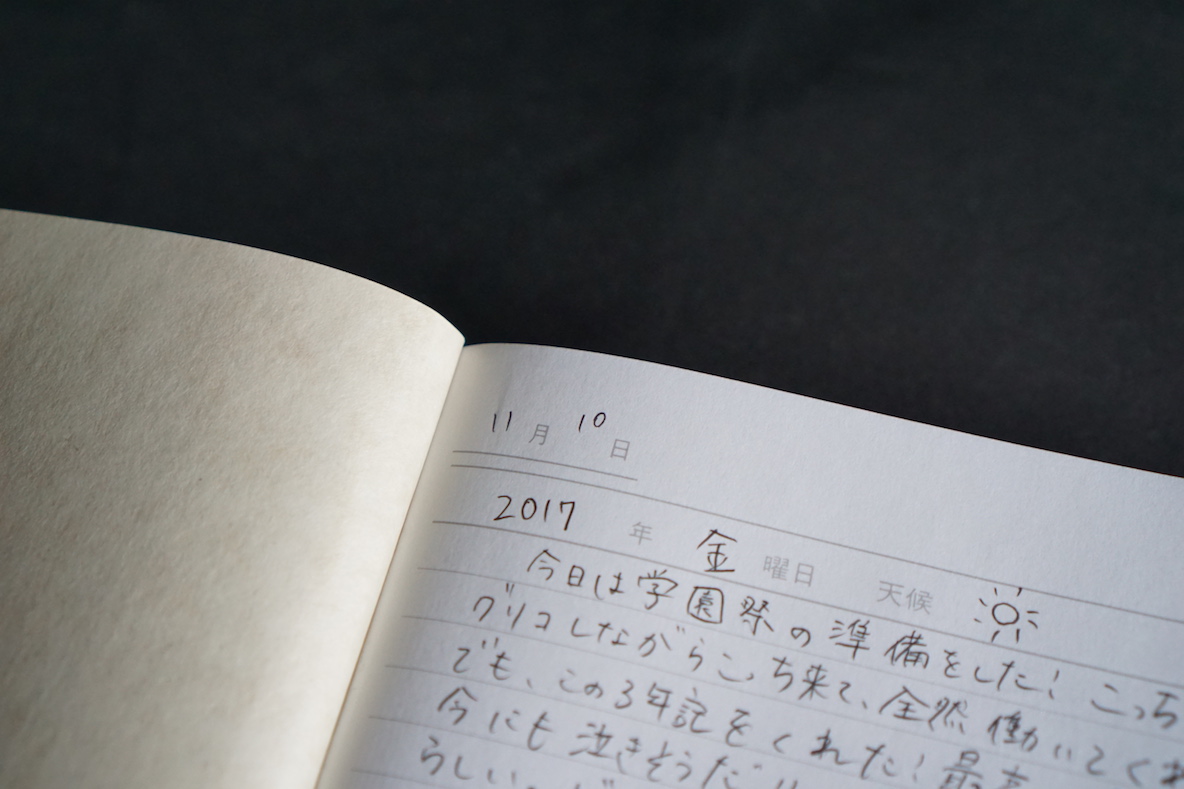 11月10日
2017年 金曜日 天候
今日は学園祭の準備をした! こっち
グリコしながらこっち来て、全然働いてくれ
でも、この3年記をくれた! 最高
今にも泣きそうだ
らしい